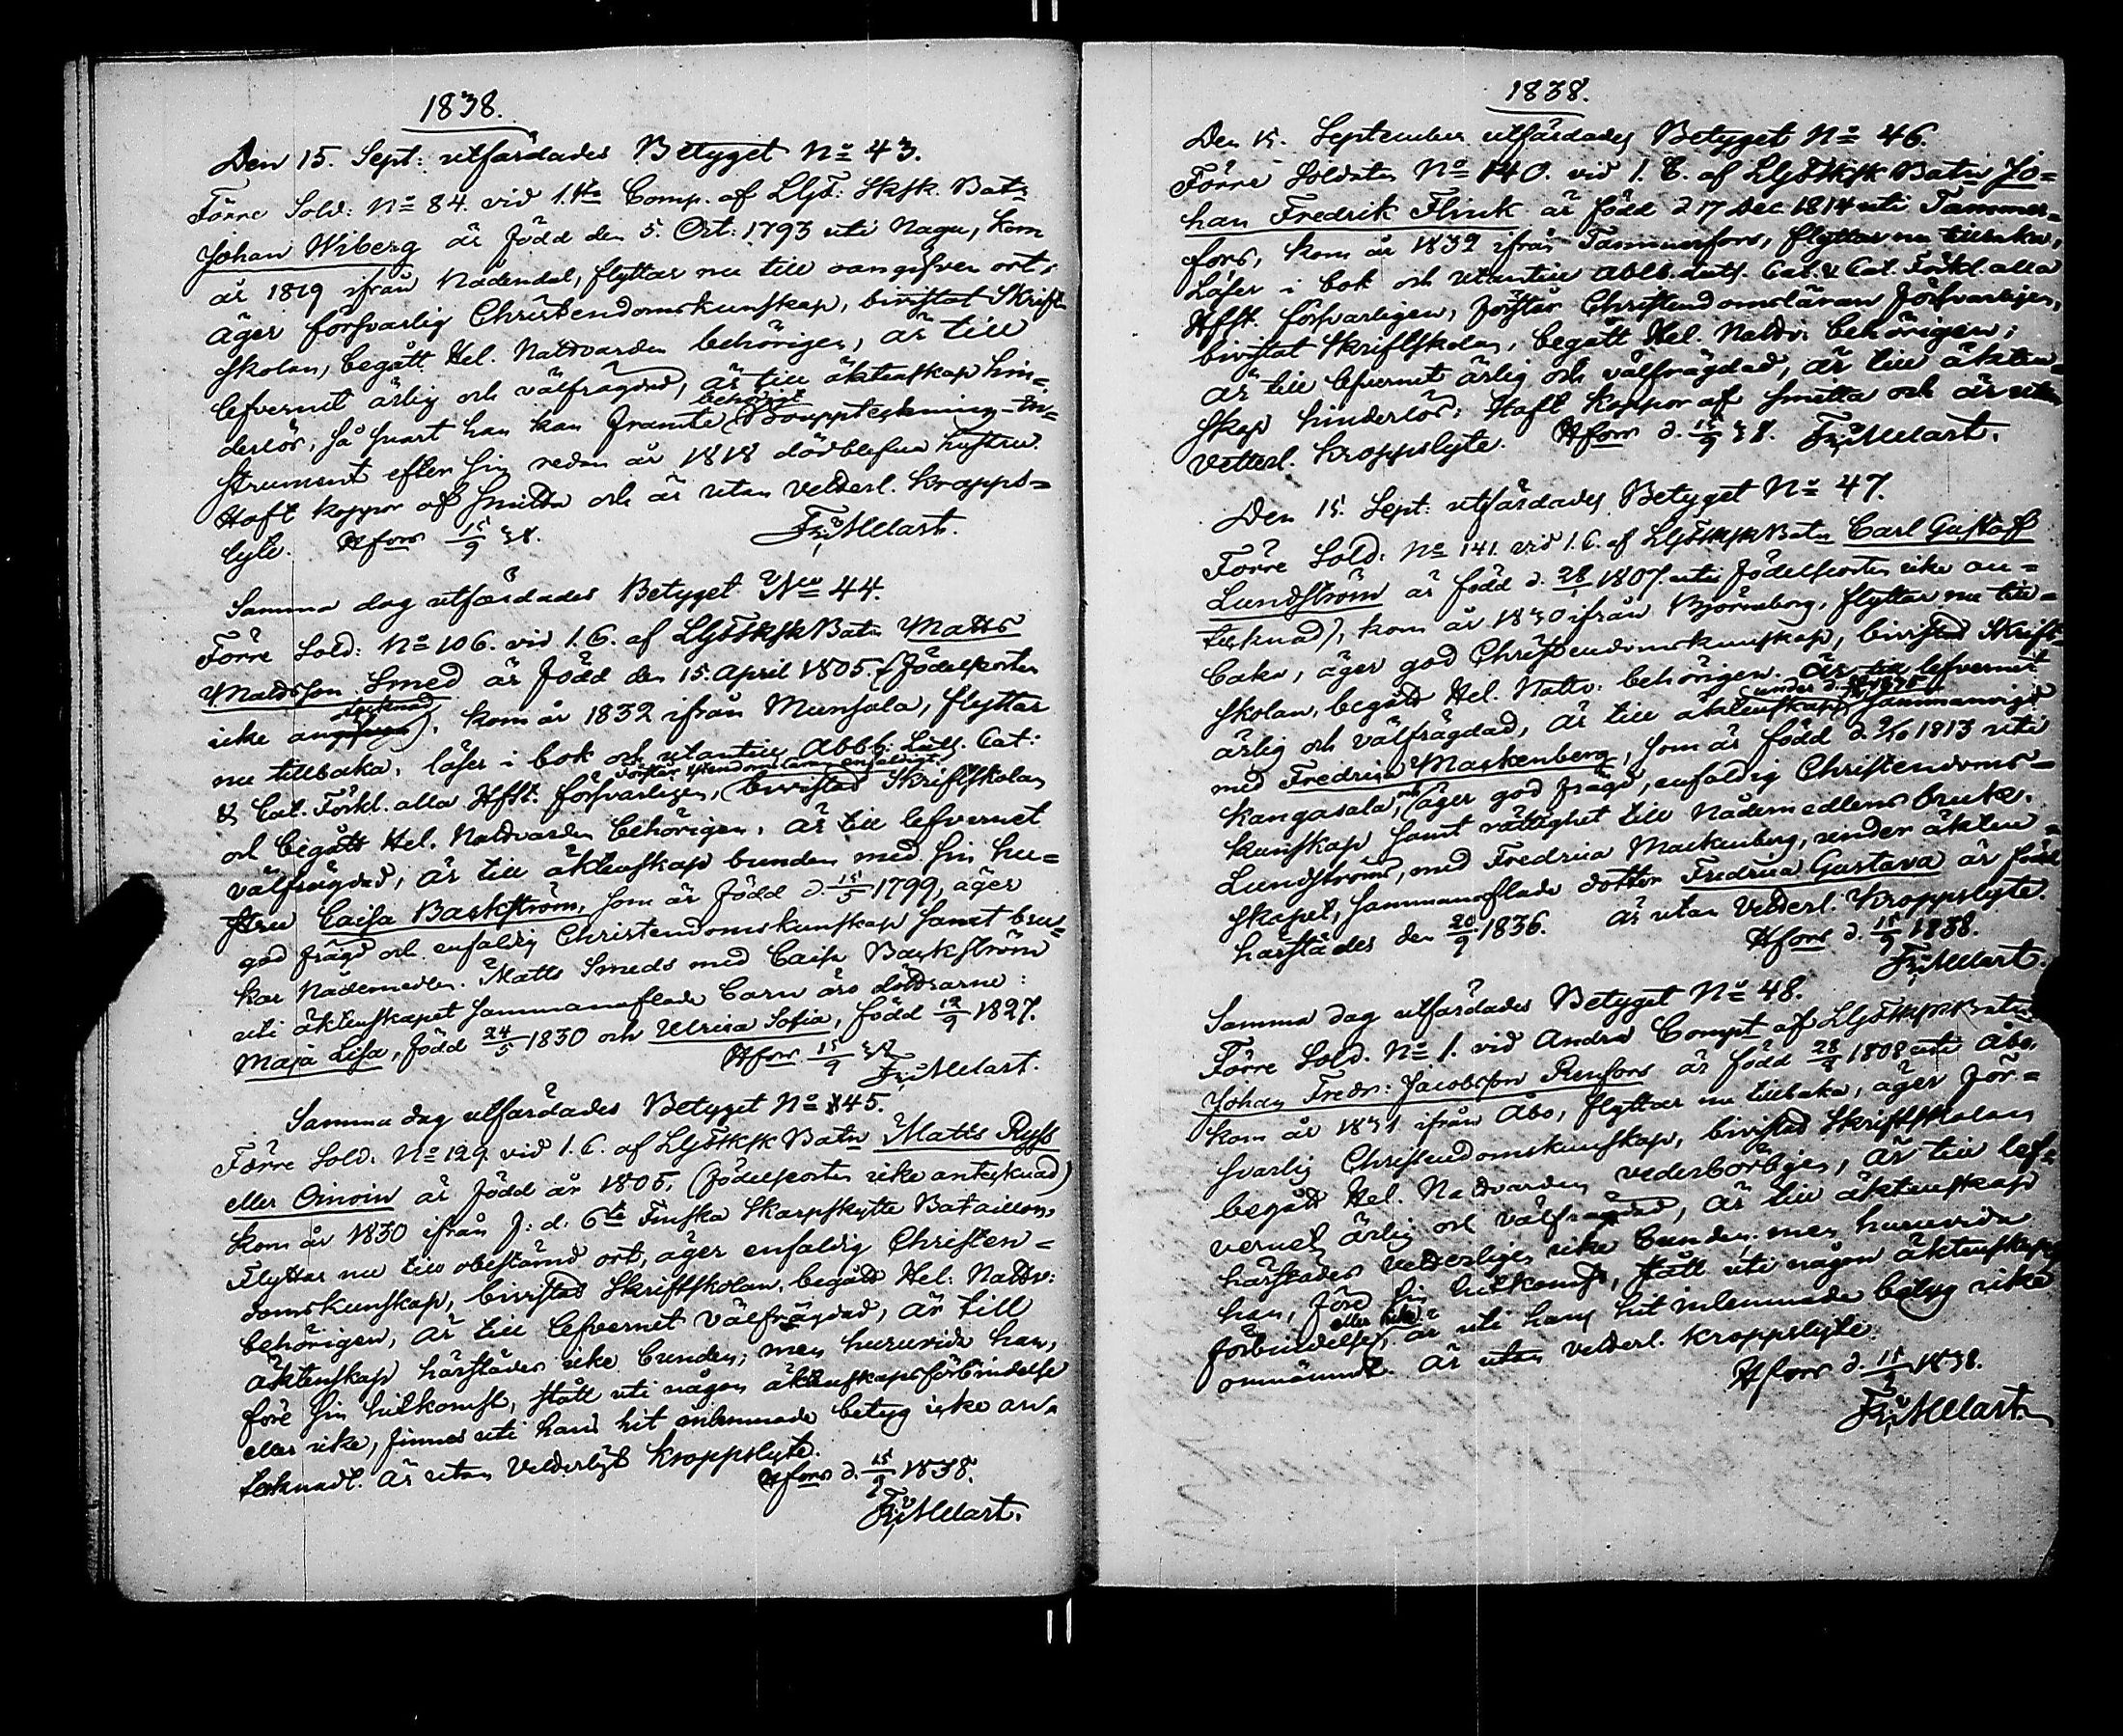 1838.
Den 15. Sept: utfärdades Betyget No 43.
Förre Sold: No 84. vid 1.sta Comp. af LGöt: Sksk. Batn
Johan Wiberg är född den 5. Oct: 1793 uti Nagu, kom
år 1819 ifrån Nådendal, flyttar nu till oangifven ort,
äger försvarlig Christendomskunskap, bivistat Skrift
skolan, begått Hel. Nattvarden behörigen, är till
lefvernet ärlig och välfrägdad, är till äktenskap hin=
derlös, så snart han kan framte behörigt Bouppteckning-In=
strument efter sin redan år 1818 dödblefna hustru.
Haft koppor af smitta och är utan vederl. kropps=
lyte. Hfors 15/9 38. Fr: Melart.
Samma dag utfärdades Betyget No 44.
Förre Sold: No 106. vid 1.C. af LGötSksk Batn Matts
Mattsson Smed är född den 15. April 1805. (födelseorten
icke antecknad), kom år 1832 ifrån Munsala, flyttar
nu tillbaka, läser i bok och utantill Abbb. Luth. Cat:
& Cat. Förkl. alla Hfst. försvarligen, förstår Xstendomsläran enfaldigt, bivistat Skriftskolan
och begått Hel. Nattvarden behörigen. är till lefvernet
välfrägdad, är till äktenskap bunden med sin hu=
stru Caisa Backström, som är född d. 15/5 1799, äger
god frägd och enfaldig Christendomskunskap samt bru=
kar Nådemedlen. Matts Smeds med Caisa Backström
uti äktenskapet sammanaflade barn äro döttrarne:
Maja Lisa, född 24/5 1830 och Ulrica Sofia, född 12/9 1827.
Hfors 15/9 38 Fr: Melart.
Samma dag utfärdades Betyget No 45.
Förre Sold. No 129 vid 1.C. af LGötSksk Batn Matts Ryss
eller Oinoin är född år 1805. (födelseorten icke antecknad)
kom år 1830 ifrån f: d: 6te Finska Skarpskytte Bataillon,
Flyttar nu till obestämd ort, äger enfaldig Christen=
domskunskap, bivistat Skriftskolan, begått Hel: Nattv:
behörigen, är till lefvernet välfrägdad, är till
äktenskap härstädes icke bunden; men huruvida han,
före sin hitkomst, stått uti någon äktenskapsförbindelse
eller icke, finnes uti hans hit inlemnade betyg icke an=
tecknadt. är utan vederligt kroppslyte.
Hfors d. 15/9 1838.
Fr: Melart.
1838.
Den 15. September utfärdades Betyget No 46.
Förre Soldaten No 140. vid 1. C. af LGötSksk Batn Jo=
han Fredrik Flink är född d 17 Dec 1814 uti Tammer=
fors, kom år 1832 ifrån Tammerfors, flyttar nu tillbaka,
Läser i bok och utantill Abbb. Luth. Cat. & Cat. Förkl. alla
Hfst. försvarligen, förstår Christendomsläran försvarligen,
bivistat Skriftskolan, begått Hel. Nattv: behörigen;
är till lefvernet ärlig och välfrägdad, är till äkten=
skap hinderlös. Haft koppor af smitta och är utan
vetterl. kroppslyte. Hfors d. 15/9 38. Fr: Melart.
Den 15. Sept: utfärdades Betyget No 47.
Förre Sold: No 141. vid 1.C. af LGötSksk Batn Carl Gustaf
Lundström är född d. 28/ 1807. uti (födelseorten icke an=
tecknad), kom år 1830 ifrån Björneborg, flyttar nu till=
baka, äger god Christendomskunskap, bivistat Skrift=
skolan, begått Hel. Nattv: behörigen. är till lefvernet
ärlig och välfrägdad, är till äktenskap under d. 1835 sammanvigd
med Fredrica Mackenberg, som är född d. 9/10 1813 uti
Kangasala, och äger god frägd, enfaldig Christendoms=
kunskap samt rättighet till Nådemedlens bruk.
Lundströms, med Fredrica Mackenberg, under äkten=
skapet, sammanaflade dotter Fredrica Gustava är född
härstädes den 20/9 1836. är utan vederl. kroppslyte.
Hfors d. 15/9 1838.
Fr: Melart.
Samma dag utfärdades Betyget No 48.
Förre Sold. No 1. vid Andra Compt af LGötSksk Batn
Johan Fredr: Jacobsson Renfors är född 28/2 1808 uti Åbo,
kom år 1831 ifrån Åbo, flyttar nu tillbaka, äger för=
svarlig Christendomskunskap, bivistat Skriftskolan
begått Hel. Nattvarden vederbörligen, är till lef=
vernet ärlig och välfrägdad, är till äktenskap
härstädes vetterligen icke bunden; men huruvida
han, före sin hitkomst, stått uti någon äktenskaps
förbindelse eller icke, är uti hans hit inlemnade betyg icke
omnämndt. är utan vederl. kroppslyte.
Hfors d. 15/9 1838.
Fr: Melart.